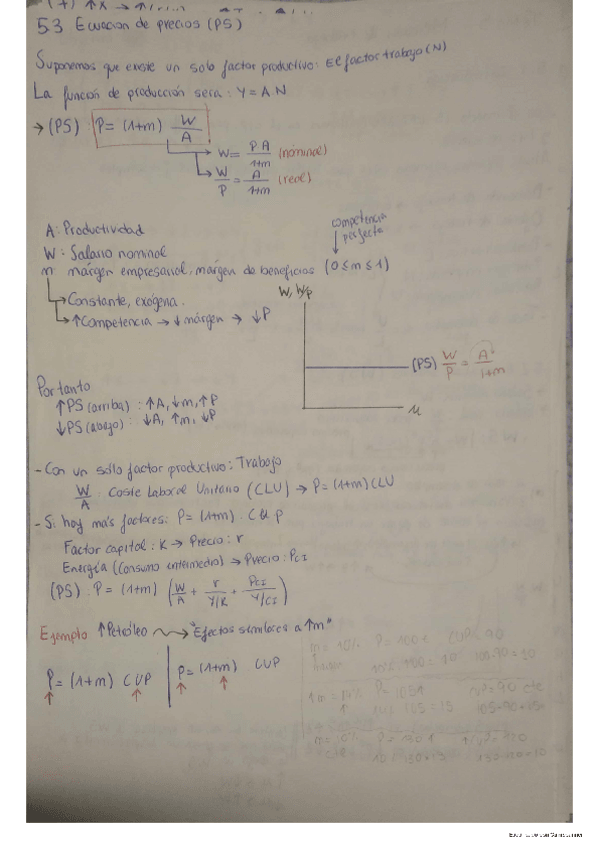 5.3 Ecuación de precios (PS)
Suponemos que existe un solo factor productivo: El factor trabajo (N)
La función de producción será: Y = A N
→ (PS): P = (1+m) W/A
→ W = P A/1+m (nominal)
→ W/P = A/1+m (real)
A: Productividad
W: Salario nominal
competencia perfecta
m: márgen empresarial, márgen de beneficios (0 ≤ m ≤ 1)
→ Constante, exógena.
→ ↑Competencia → ↓ márgen → ↓P
W, W/P
(PS) W/P = A/1+m
u
Por tanto
↑PS (arriba): ↑A, ↓m, ↑P
↓PS (abajo): ↓A, ↑m, ↓P
- Con un sólo factor productivo: Trabajo
W/A Coste Laboral Unitario (CLU) → P = (1+m) CLU
- Si hay más factores: P = (1+m) · CUP
Factor capital: K → Precio: r
Energía (Consumo intermedio) → Precio: PCI
(PS): P = (1+m) (W/A + r/Y/K + PCI/Y/CI)
Ejemplo ↑Petróleo → "Efectos similares a ↑m"
P = (1+m) CUP
↑ ↑
P = (1+m) CUP
↑ ↑
m = 10% P = 100€ CUP = 90
10% · 100 = 10 100-90 = 10